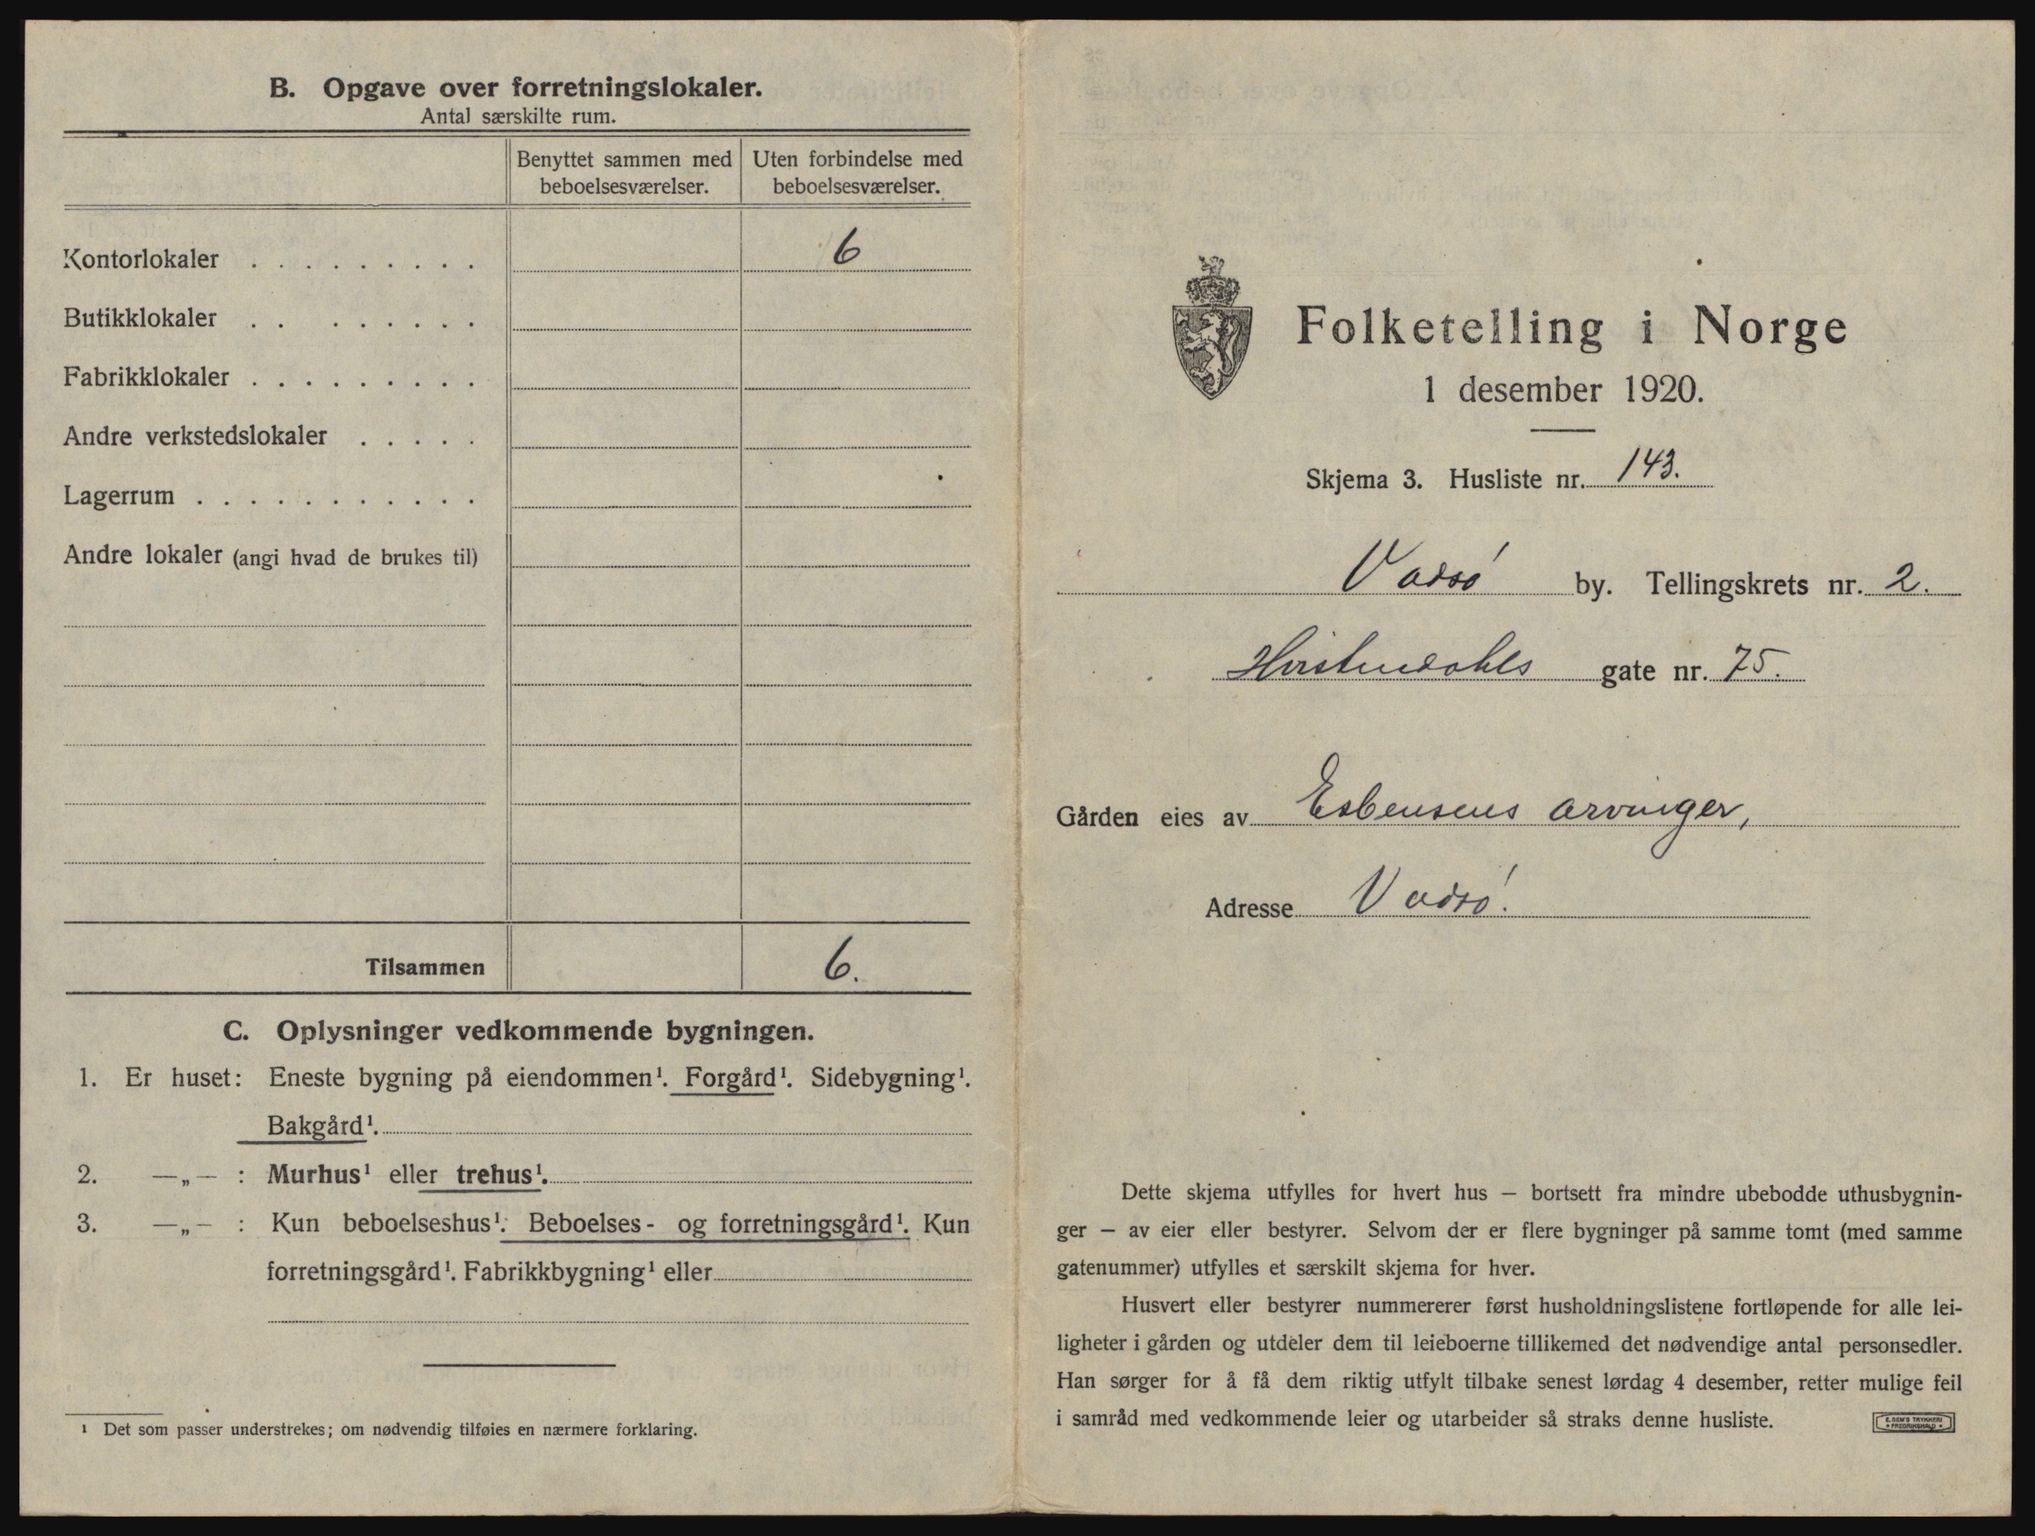 B. Opgave over forretningslokaler.
Antal særskilte rum.
Benyttet sammen med beboelsesværelser.
Uten forbindelse med beboelsesværelser.
Kontorlokaler . . . . . . . . . 6
Butikklokaler . . . . . . . .
Fabrikklokaler . . . . . . . . .
Andre verkstedslokaler . . . . .
Lagerrum . . . . . . . . . . .
Andre lokaler (angi hvad de brukes til)
Tilsammen 6.
C. Oplysninger vedkommende bygningen.
1. Er huset: Eneste bygning på eiendommen¹. Forgård¹. Sidebygning¹.
Bakgård¹.
2. —„— : Murhus¹ eller trehus¹.
3. —„— : Kun beboelseshus¹. Beboelses- og forretningsgård¹. Kun
forretningsgård¹. Fabrikkbygning¹ eller
¹ Det som passer understrekes; om nødvendig tilføies en nærmere forklaring.
Folketelling i Norge
1 desember 1920.
Skjema 3. Husliste nr. 143.
Vadsø by. Tellingskrets nr. 2.
gate nr. 75.
Gården eies av Esbensens arvinger,
Adresse Vadsø.
Dette skjema utfylles for hvert hus — bortsett fra mindre ubebodde uthusbygnin-
ger — av eier eller bestyrer. Selvom der er flere bygninger på samme tomt (med samme
gatenummer) utfylles et særskilt skjema for hver.
Husvert eller bestyrer nummererer først husholdningslistene fortløpende for alle lei-
ligheter i gården og utdeler dem til leieboerne tillikemed det nødvendige antal personsedler.
Han sørger for å få dem riktig utfylt tilbake senest lørdag 4 desember, retter mulige feil
i samråd med vedkommende leier og utarbeider så straks denne husliste.
E. SEM'S TRYKKERI
FREDRIKSHALD